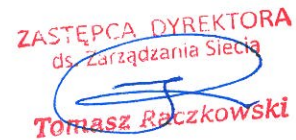 ZASTĘPCA DYREKTORA
ds. Zarządzania Siecią
Tomasz Raczkowski